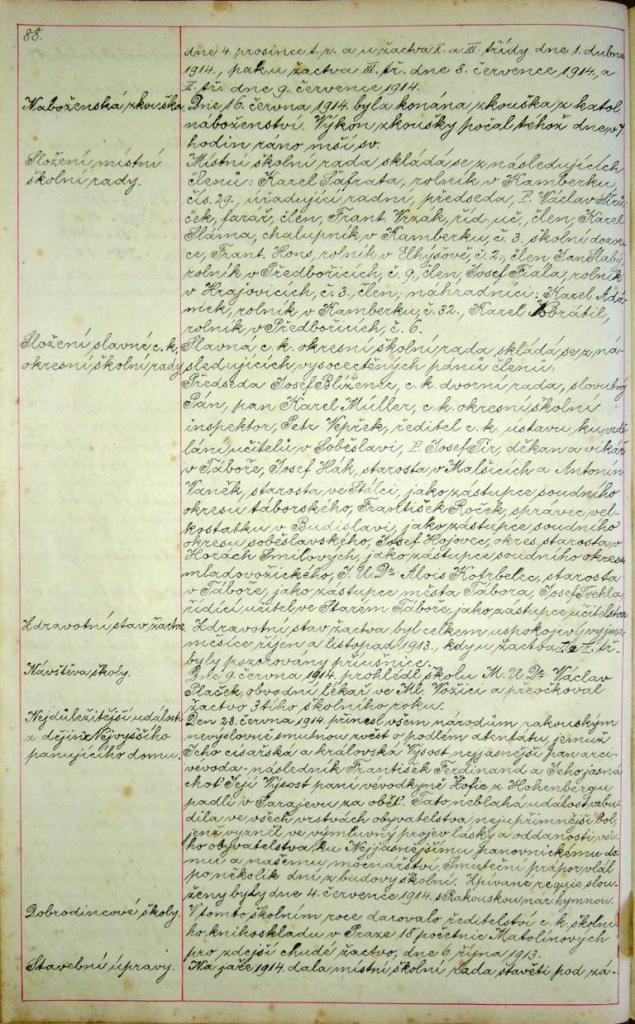 88.
dne 4. prosince t.r. a u žactva I. a III. třídy dne 1. dubna
1914., pak u žactva III. tř. dne 8. července 1914, a
tř. dne 9. července 1914.
Náboženská zkouška.
Dne 16. června 1914 byla konána zkouška z katol.
náboženství. Výkon zkoušky počal téhož dne v 7
hodin ráno mší sv.
Složení místní
školní rady.
Místní školní rada skládá se z následujících
členů: Karel Šafrata, rolník v Kamberku,
čís. 29, úřadující radní, předseda, P. Václav
farář, člen, Frant. Vrzák, říd. uč., člen, Karel
Sláma, chalupník v Kamberku, č. 3, školní dozor-
ce, Frant. Hons, rolník v č. 2., člen, Jan
rolník v Předbořicích, č. 9, člen, Josef Fiala, rolník
v Hrajovicích, č. 3., člen, náhradníci: Karel Adá-
mek, rolník v Kamberku, č. 32., Karel
rolník v Předbořicích, č. 6.
Složení slavné c. k.
okresní školní rady.
Slavná c. k. okresní školní rada skládá se z ná-
sledujících vysocectěných pánů členů:
Předseda Josef Blíženec, c. k. dvorní rada, slovutný
Pán, pan Karel Müller, c. k. okresní školní
inspektor, Petr Vepřek, ředitel c. k. ústavu ku vzdě-
lání učitelů v Soběslavi, P. Josef Tír, děkan a vikář
v Táboře, Josef Hák, starosta v Malšicích a Antonín
Vaněk, starosta ve Stálci, jako zástupce soudního
okresu táborského, František Roček, správec vel-
kostatku v Budislavi, jako zástupce soudního
okresu soběslavského, Josef Hojovec, okres. starosta v
Horách Smilových, jako zástupce soudního okresu
mladovožického, J. U. Dr. Alois Kotrbelec, starosta
v Táboře, jako zástupce města Tábora, Josef
řídící učitel ve Starém Táboře, jako zástupce učitelstva.
Zdravotní stav žactva.
Zdravotní stav žactva byl celkem uspokojivý vyjma
měsíce říjen a listopad 1913., kdy u žactva I. a II. tř.
byly pozorovány příušnice.
Návštěva školy.
Dne 9. června 1914. prohlédl školu M. U. Dr. Václav
Plaček, obvodní lékař ve Ml. Vožici a přeočkoval
žactvo 3tího školního roku.
Nejdůležitější událost
z dějin Nejvyššího
panujícího domu.
Den 28. června 1914. přinesl všem národům rakouským
nevýslovně smutnou zvěst o podlém atentátu, jemuž
Jeho císařská a královská Výsost nejjasnější pan arci-
vévoda-následník František Ferdinand a Jeho jasná
choť Její Výsost paní vévodkyně Žofie z Hohenbergu
padli v Sarajevu za oběť. Tato neblahá událost vzbu-
dila ve všech vrstvách obyvatelstva nejupřímnější bol,
jenž vyzněl ve výmluvný projev lásky a oddanosti vše-
ho obyvatelstva ku Nejjasnějšímu panovnickému do-
mu a našemu mocnářství. Smuteční prápor vlál
po několik dní z budovy školní. Zpívané requie slou-
ženy byly dne 4. července 1914. s Rakouskou nár. hymnou.
Dobrodincové školy.
V tomto školním roce darovalo ředitelství c. k. školní-
ho knihoskladu v Praze 18 početnic Matolínových
pro zdejší chudé žactvo, dne 6. října 1913.
Stavební úpravy.
Na jaře 1914. dala místní školní rada stavěti pod zá-